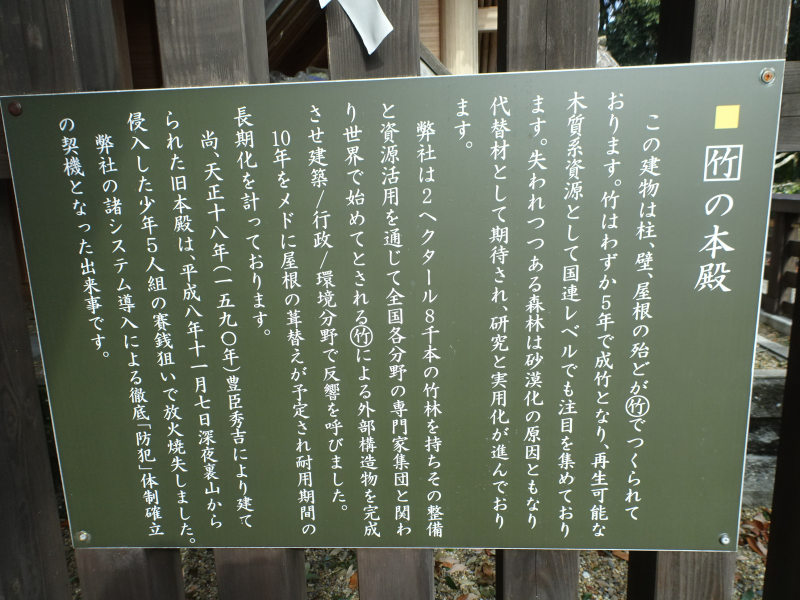 ■ 竹の本殿
この建物は柱、壁、屋根の殆どが竹でつくられて
おります。竹はわずか5年で成竹となり、再生可能な
木質系資源として国連レベルでも注目を集めており
ます。失われつつある森林は砂漠化の原因ともなり
代替材として期待され、研究と実用化が進んでおり
ます。
弊社は2ヘクタール8千本の竹林を持ちその整備
と資源活用を通じて全国各分野の専門家集団と関わ
り世界で始めてとされる竹による外部構造物を完成
させ建築/行政/環境分野で反響を呼びました。
10年をメドに屋根の葺替えが予定され耐用期間の
長期化を計っております。
尚、天正十八年(一五九〇年)豊臣秀吉により建て
られた旧本殿は、平成八年十一月七日深夜裏山から
侵入した少年5人組の賽銭狙いで放火焼失しました。
弊社の諸システム導入による徹底「防犯」体制確立
の契機となった出来事です。